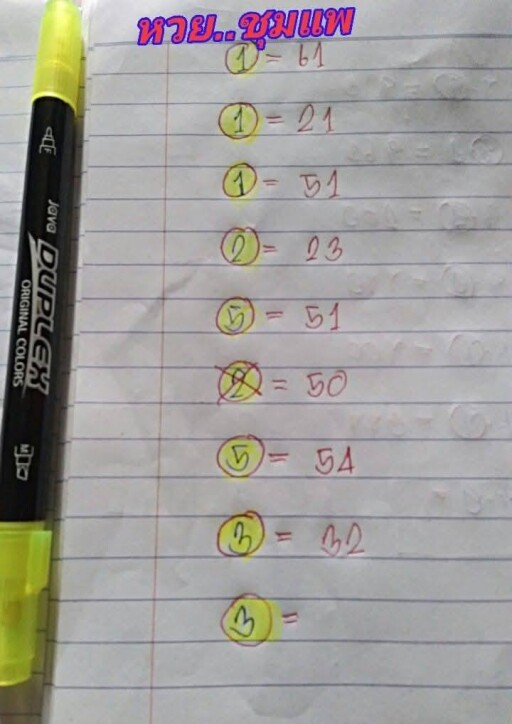 หวย..ชุมแพ
1 = 61
1 = 21
1 = 51
2 = 23
5 = 51
2 = 50
5 = 54
3 = 32
3 =
Java DUPLEX
ORIGINAL COLORS
F
M